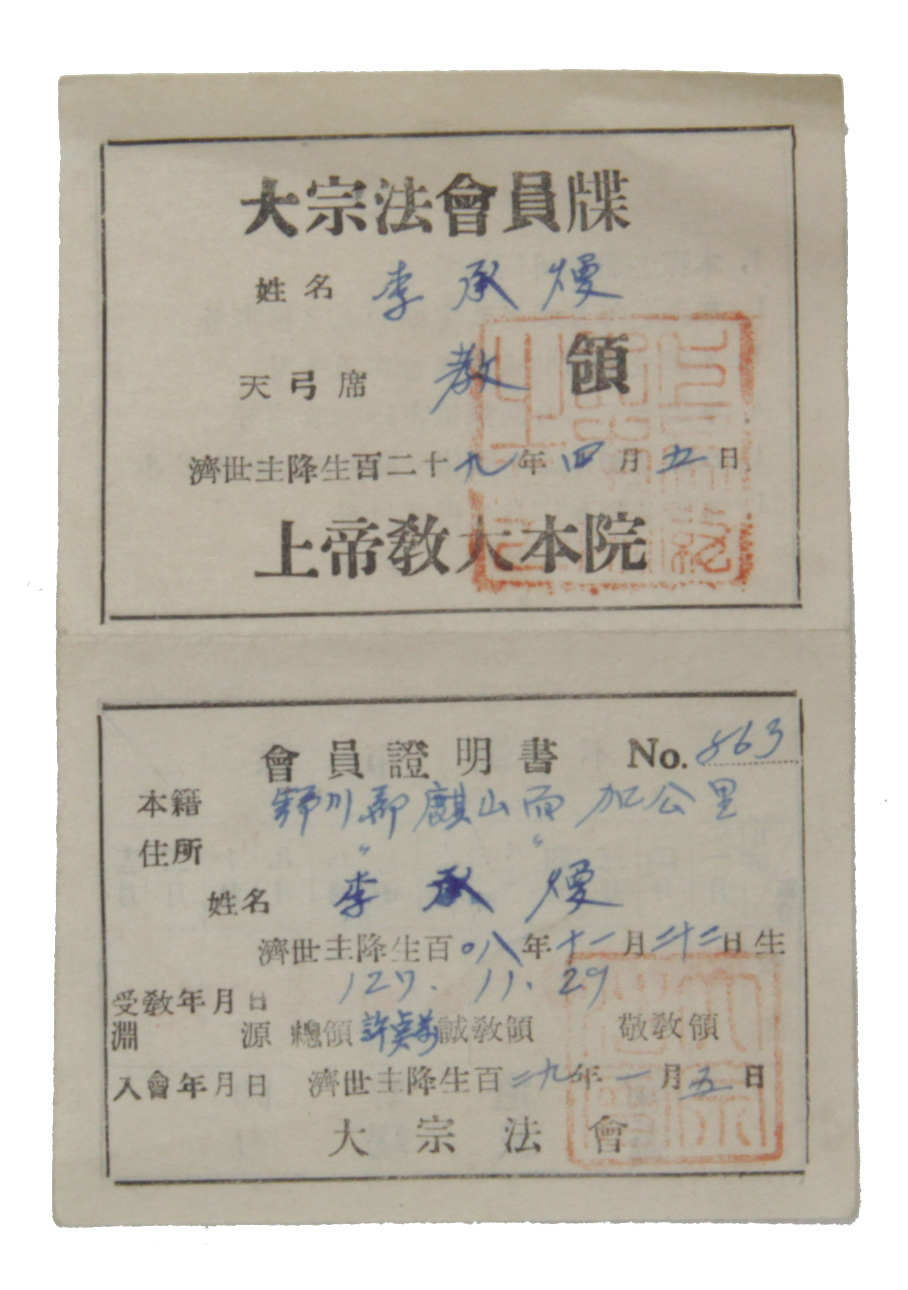 大宗法會員牒
姓名 李承熳
天弓席 敎領
濟世主降生百二十九年四月五日
上帝敎大本院
會員證明書 No. 863
本籍 郡麒山面加公里
住所 〃 〃
姓名 李承熳
濟世主降生百〇八年十一月二十二日生
受敎年月日 127. 11. 29
淵源 總領 許 誠敎領 敬敎領
入會年月日 濟世主降生百二十九年一月五日
大宗法會